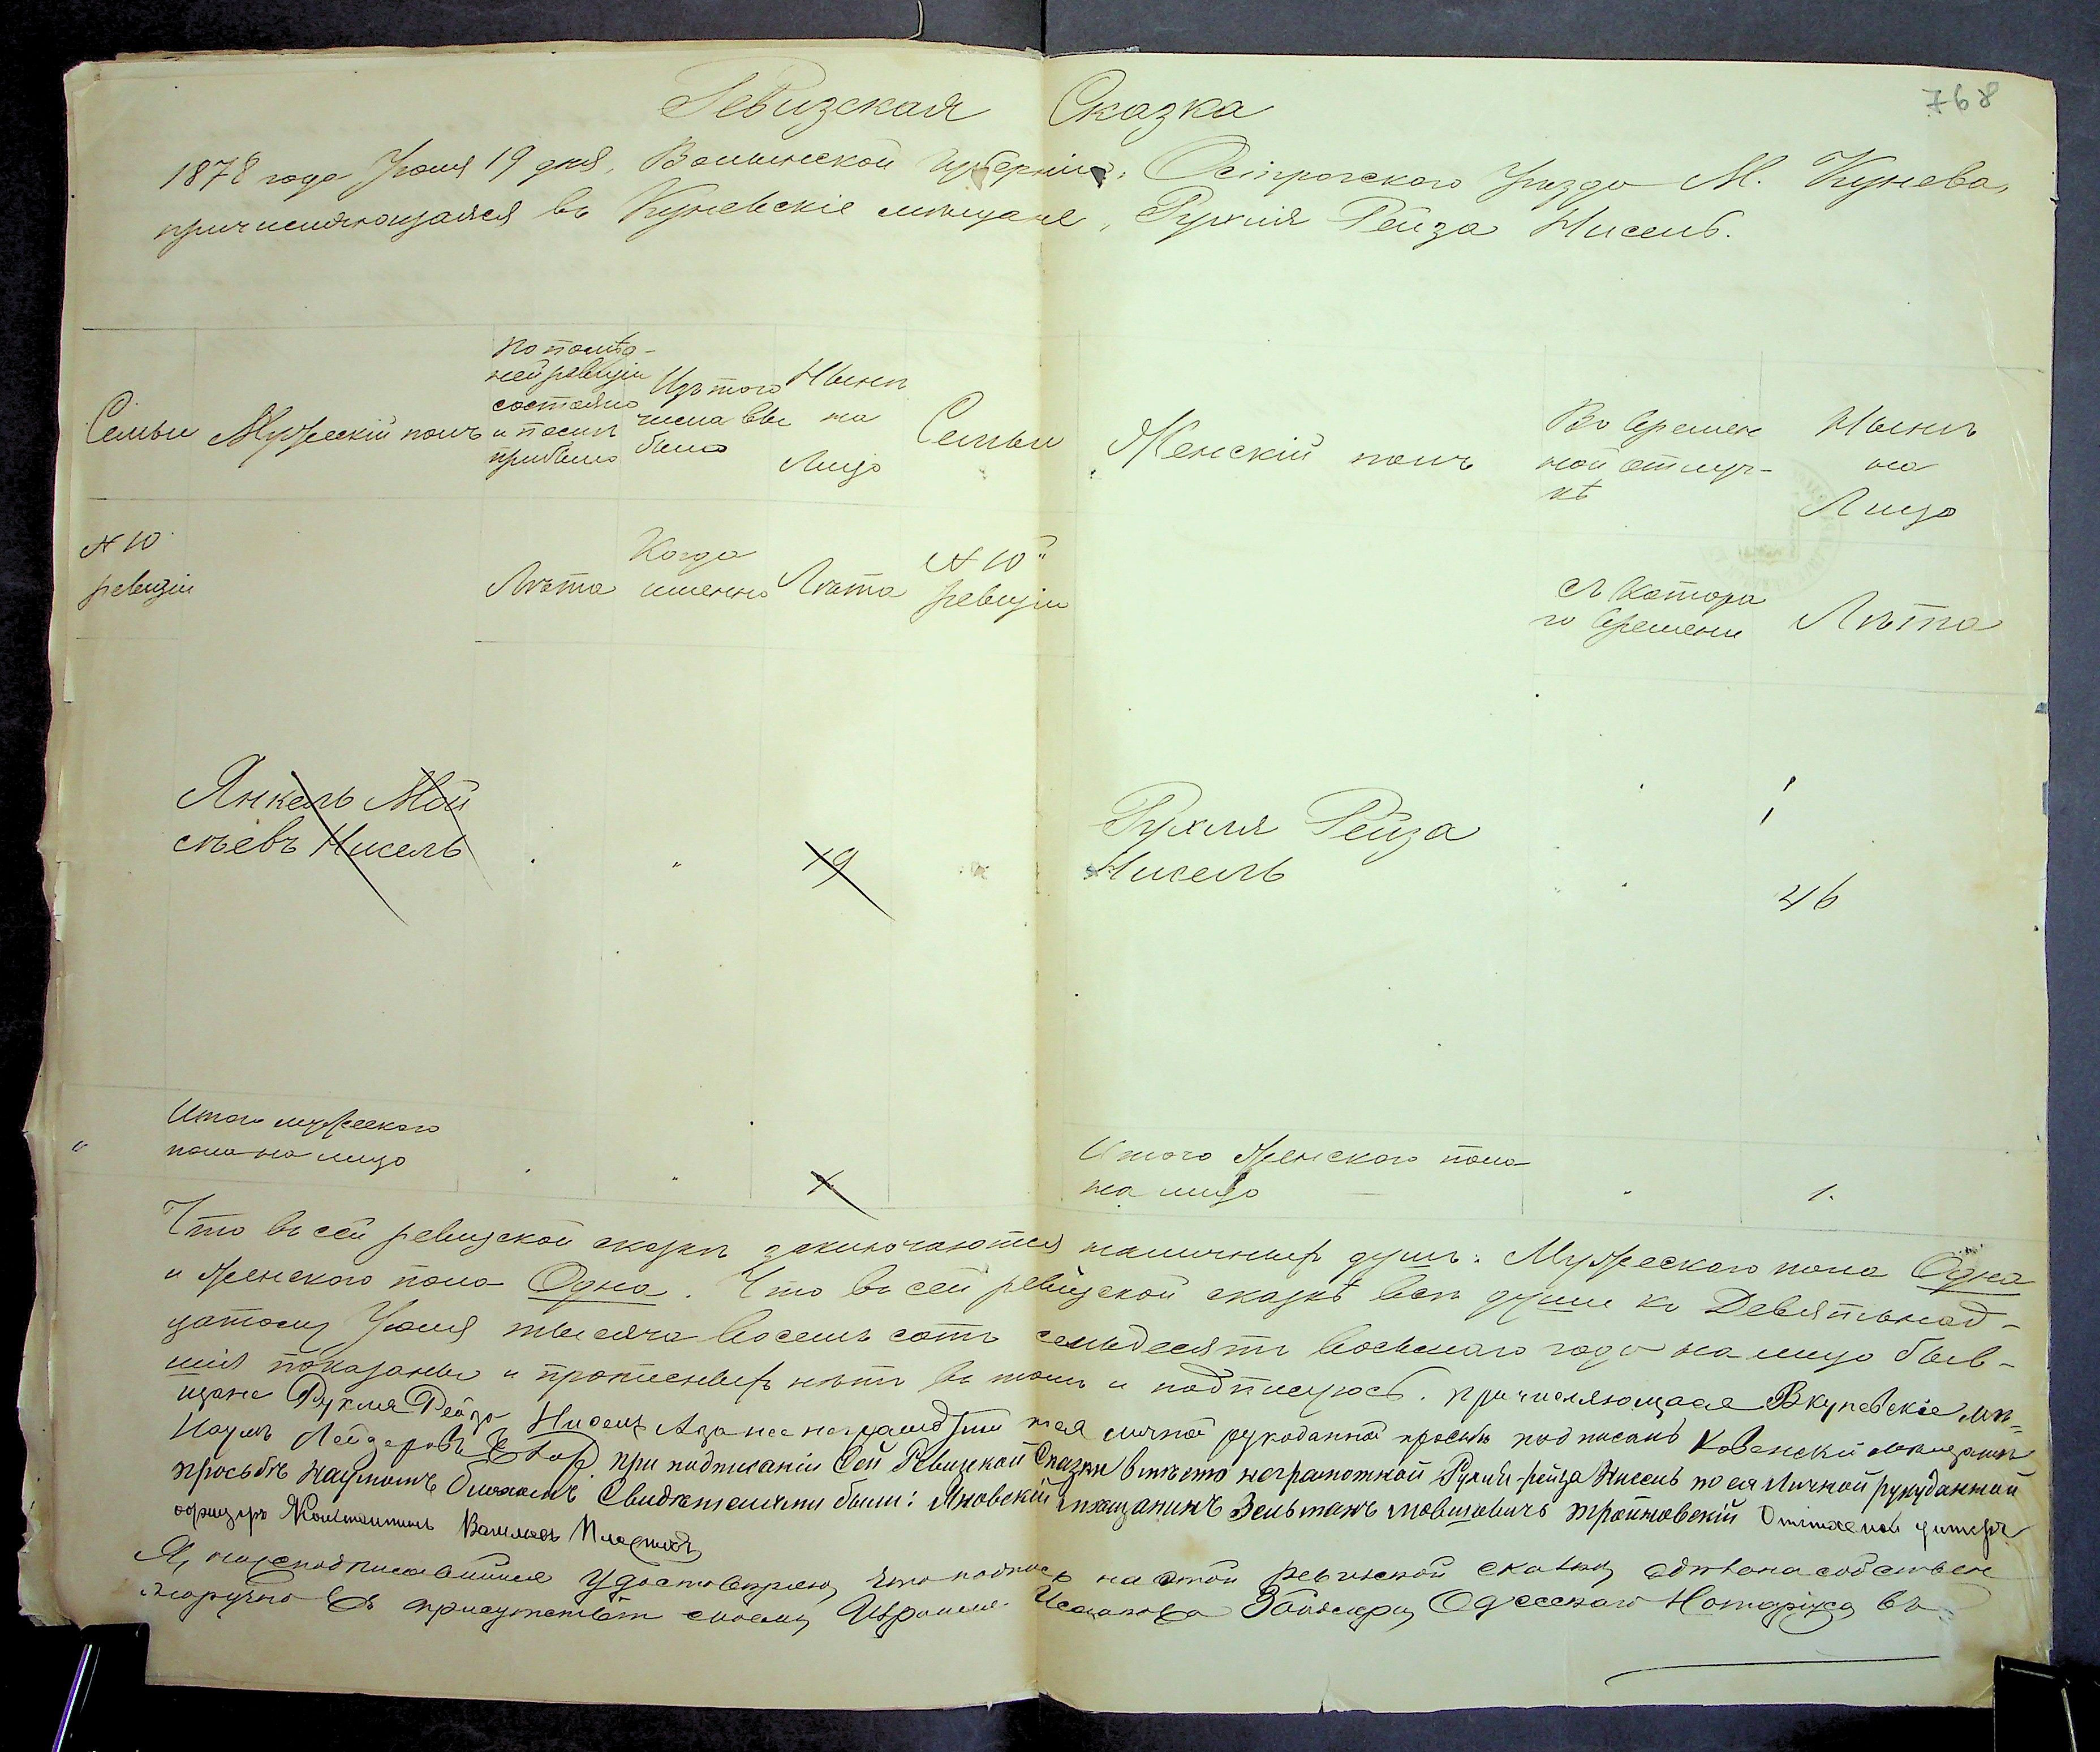 768
Ревизская Сказка
1878 года Июля 19 дня, Волынской Губерніи, Острогского Уѣзда М. Кунева,
причисляющаяся въ Куневскіе мѣщане, Рухля Рейза Нисель.
Семьи
Мужескій полъ
По послѣд-
ней ревизіи
состояло
и послѣ
прибыло
Изъ того
числа вы
было
Нынѣ
на
Лицо
Семьи
Женскій полъ
Во времен
ной отлуч-
кѣ
Нынѣ
на
Лицо
№ 10
ревизіи
Лѣта
Когда
именно
Лѣта
№ 10й
ревизіи
съ котора
го времени
Лѣта
Янкель Мой
сѣевъ Нисель
19
Рухля Рейза
Нисель
46
Итого мужескаго
пола на лицо
Итого женскаго пола
на лицо
1.
Что въ сей ревизской сказкѣ заключаются наличныхъ душъ: Мужескаго пола Одна
и женскаго пола Одна. Что въ сей ревизской сказкѣ всѣ души къ Девятьнад-
цатому Іюля тысяча восемь сотъ семьдесятъ восьмаго года на лицо быв-
шія показаны и прописныхъ нѣтъ въ томъ и подписуюсь. причисляющаяся Вкуневскіе мѣ=
щане Рухля Рейза Нисель, Аза нее неграмотной личной рукоданной просьбѣ подписалъ Ковенскій мѣщанинъ
Наумъ Лейзеровъ при подписаніи Сей Ревизской Сказки вмѣсто неграмотной Рухли-рейза Нисель по ея личной рукуданной
просьбѣ Наумомъ Свидѣтелями были: Яновскій мѣщанинъ Зельманъ Мовшовичъ Отставной унтеръ
офицеръ Константинъ Васильевъ
Я, нижеподписавшійся удостовѣряю, что подпись на этой ревизской сказкѣ сдѣлана собствен
норучно въ присутствіи моемъ, Исаакова Одесскаго Нотаріуса въ